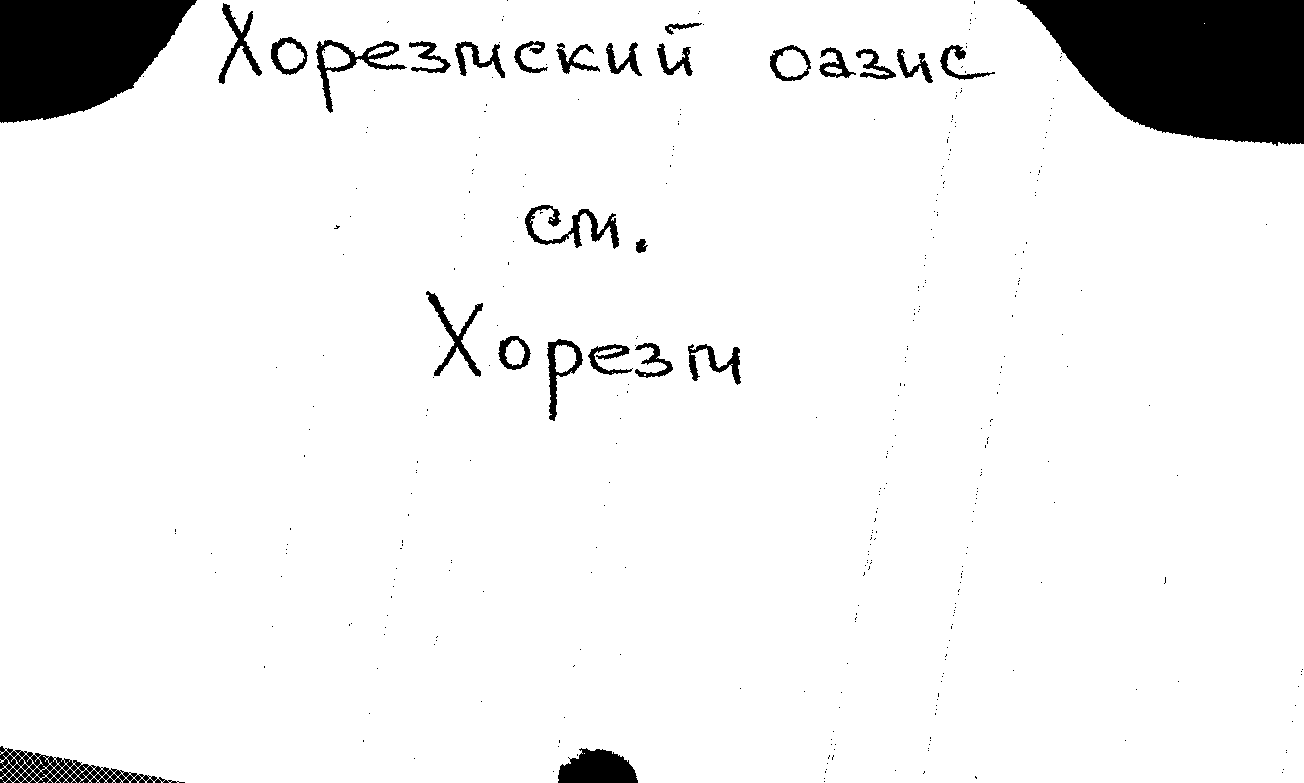 Хорезмский оазис
см.
Хорезм